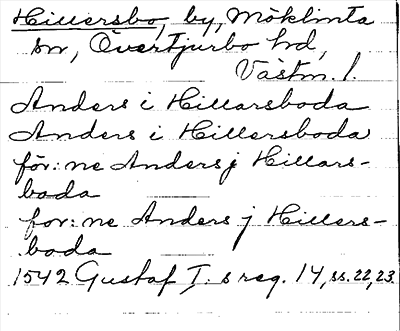 Hillersbo, by, Möklinta
sn, Övertjurbo hd,
Västm. l.
Anders i Hillarsboda
Anders i Hillersboda
för: ne Anders j Hillars-
boda
for: ne Anders j Hillers-
boda
1542 Gustaf I:s reg. 14, ss. 22, 23.